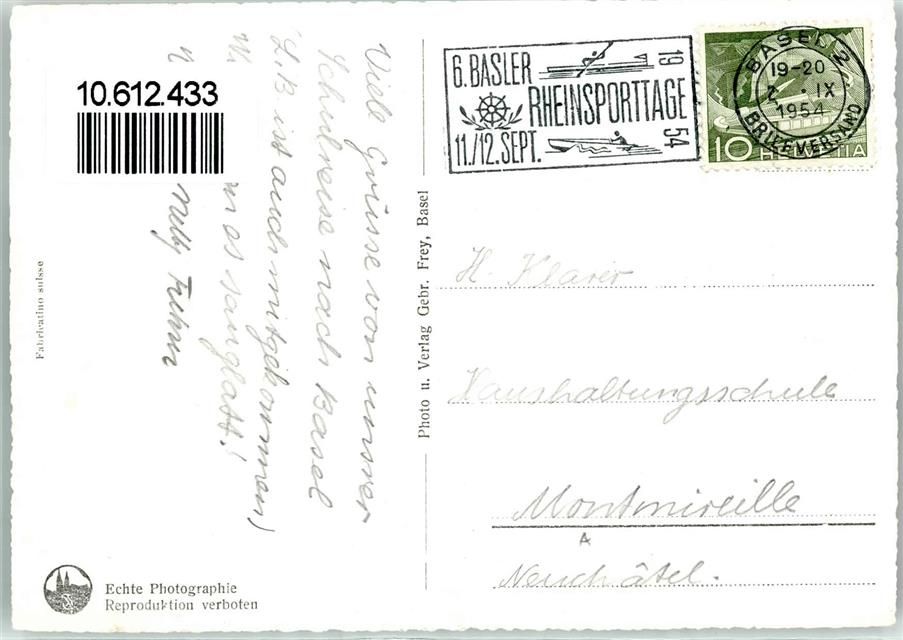 10.612.433
Viele Grüsse von unsrer
Schulreise nach Basel
(L.B ist auch mitgekommen)
es sauglatt!
Nelly
Fabricatino suisse
Echte Photographie
Reproduktion verboten
Photo u. Verlag Gebr. Frey, Basel
6. BASLER
RHEINSPORTTAGE
11./12. SEPT.
19
54
BASEL 2
19-20
2. IX
1954
BRIEFVERSAND
10 HELVETIA
H. Klarer
Haushaltungsschule
Montmireille
Neuchâtel.